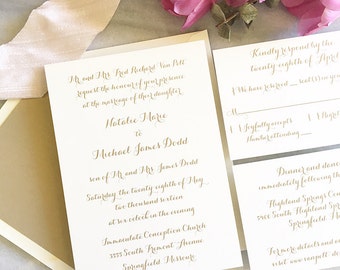 Mr and Mrs Fred Richard Van Pelt
request the honour of your presence
at the marriage of their daughter
Natalie Marie
to
Michael James Dodd
son of Mr and Mrs James Dodd
Saturday the twenty eighth of May
two thousand sixteen
at six o'clock in the evening
Immaculate Conception Church
3555 South Fremont Avenue
Springfield, Missouri
Kindly respond by the
twenty eighth of April
M
joyfully accepts
Number attending
Dinner and
immediately following
Highland Springs
South Highland Springs
Springfield,
For more details and
visit